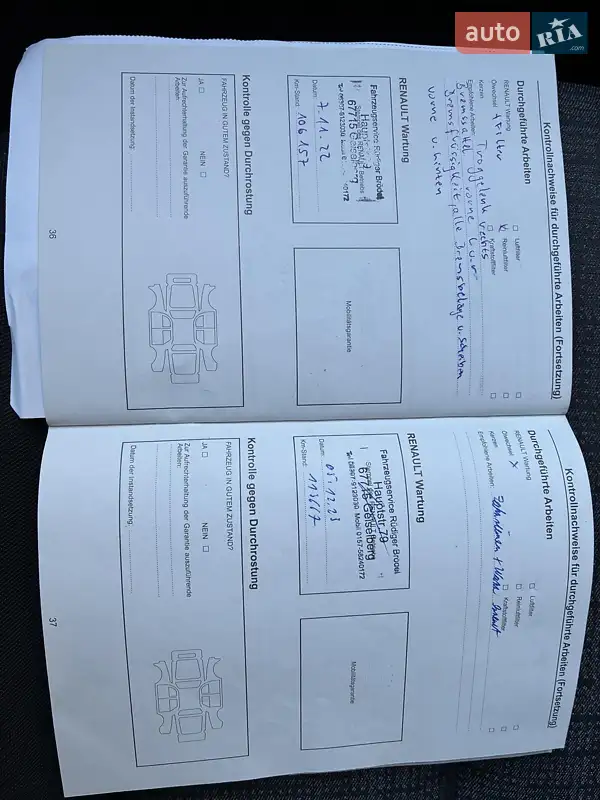 auto RIA.com
Kontrollnachweise für durchgeführte Arbeiten (Fortsetzung)
Durchgeführte Arbeiten
RENAULT Wartung
Ölwechsel + Filter
Kerzen
Luftfilter
Reinluftfilter
Kraftstofffilter
Empfohlene Arbeiten: Traggelenk rechts
Bremssattel vorne
Bremsflüssigkeit, alle Bremsbeläge u. Scheiben
vorne u. hinten
RENAULT Wartung
Fahrzeugservice Rüdiger Brödel
Hauptstr.
67715
Datum: 7.11.22
Km-Stand: 106157
Mobilitätsgarantie
Kontrolle gegen Durchrostung
FAHRZEUG IN GUTEM ZUSTAND?
JA NEIN
Zur Aufrechterhaltung der Garantie auszuführende
Arbeiten:
Datum der Instandsetzung:
36
Kontrollnachweise für durchgeführte Arbeiten (Fortsetzung)
Durchgeführte Arbeiten
RENAULT Wartung
Ölwechsel
Kerzen
Luftfilter
Reinluftfilter
Kraftstofffilter
Empfohlene Arbeiten:
RENAULT Wartung
Fahrzeugservice Rüdiger Brödel
Hauptstr. 79
67715 Geiselberg
Datum: 05.12.23
Km-Stand:
Mobilitätsgarantie
Kontrolle gegen Durchrostung
FAHRZEUG IN GUTEM ZUSTAND?
JA NEIN
Zur Aufrechterhaltung der Garantie auszuführende
Arbeiten:
Datum der Instandsetzung:
37